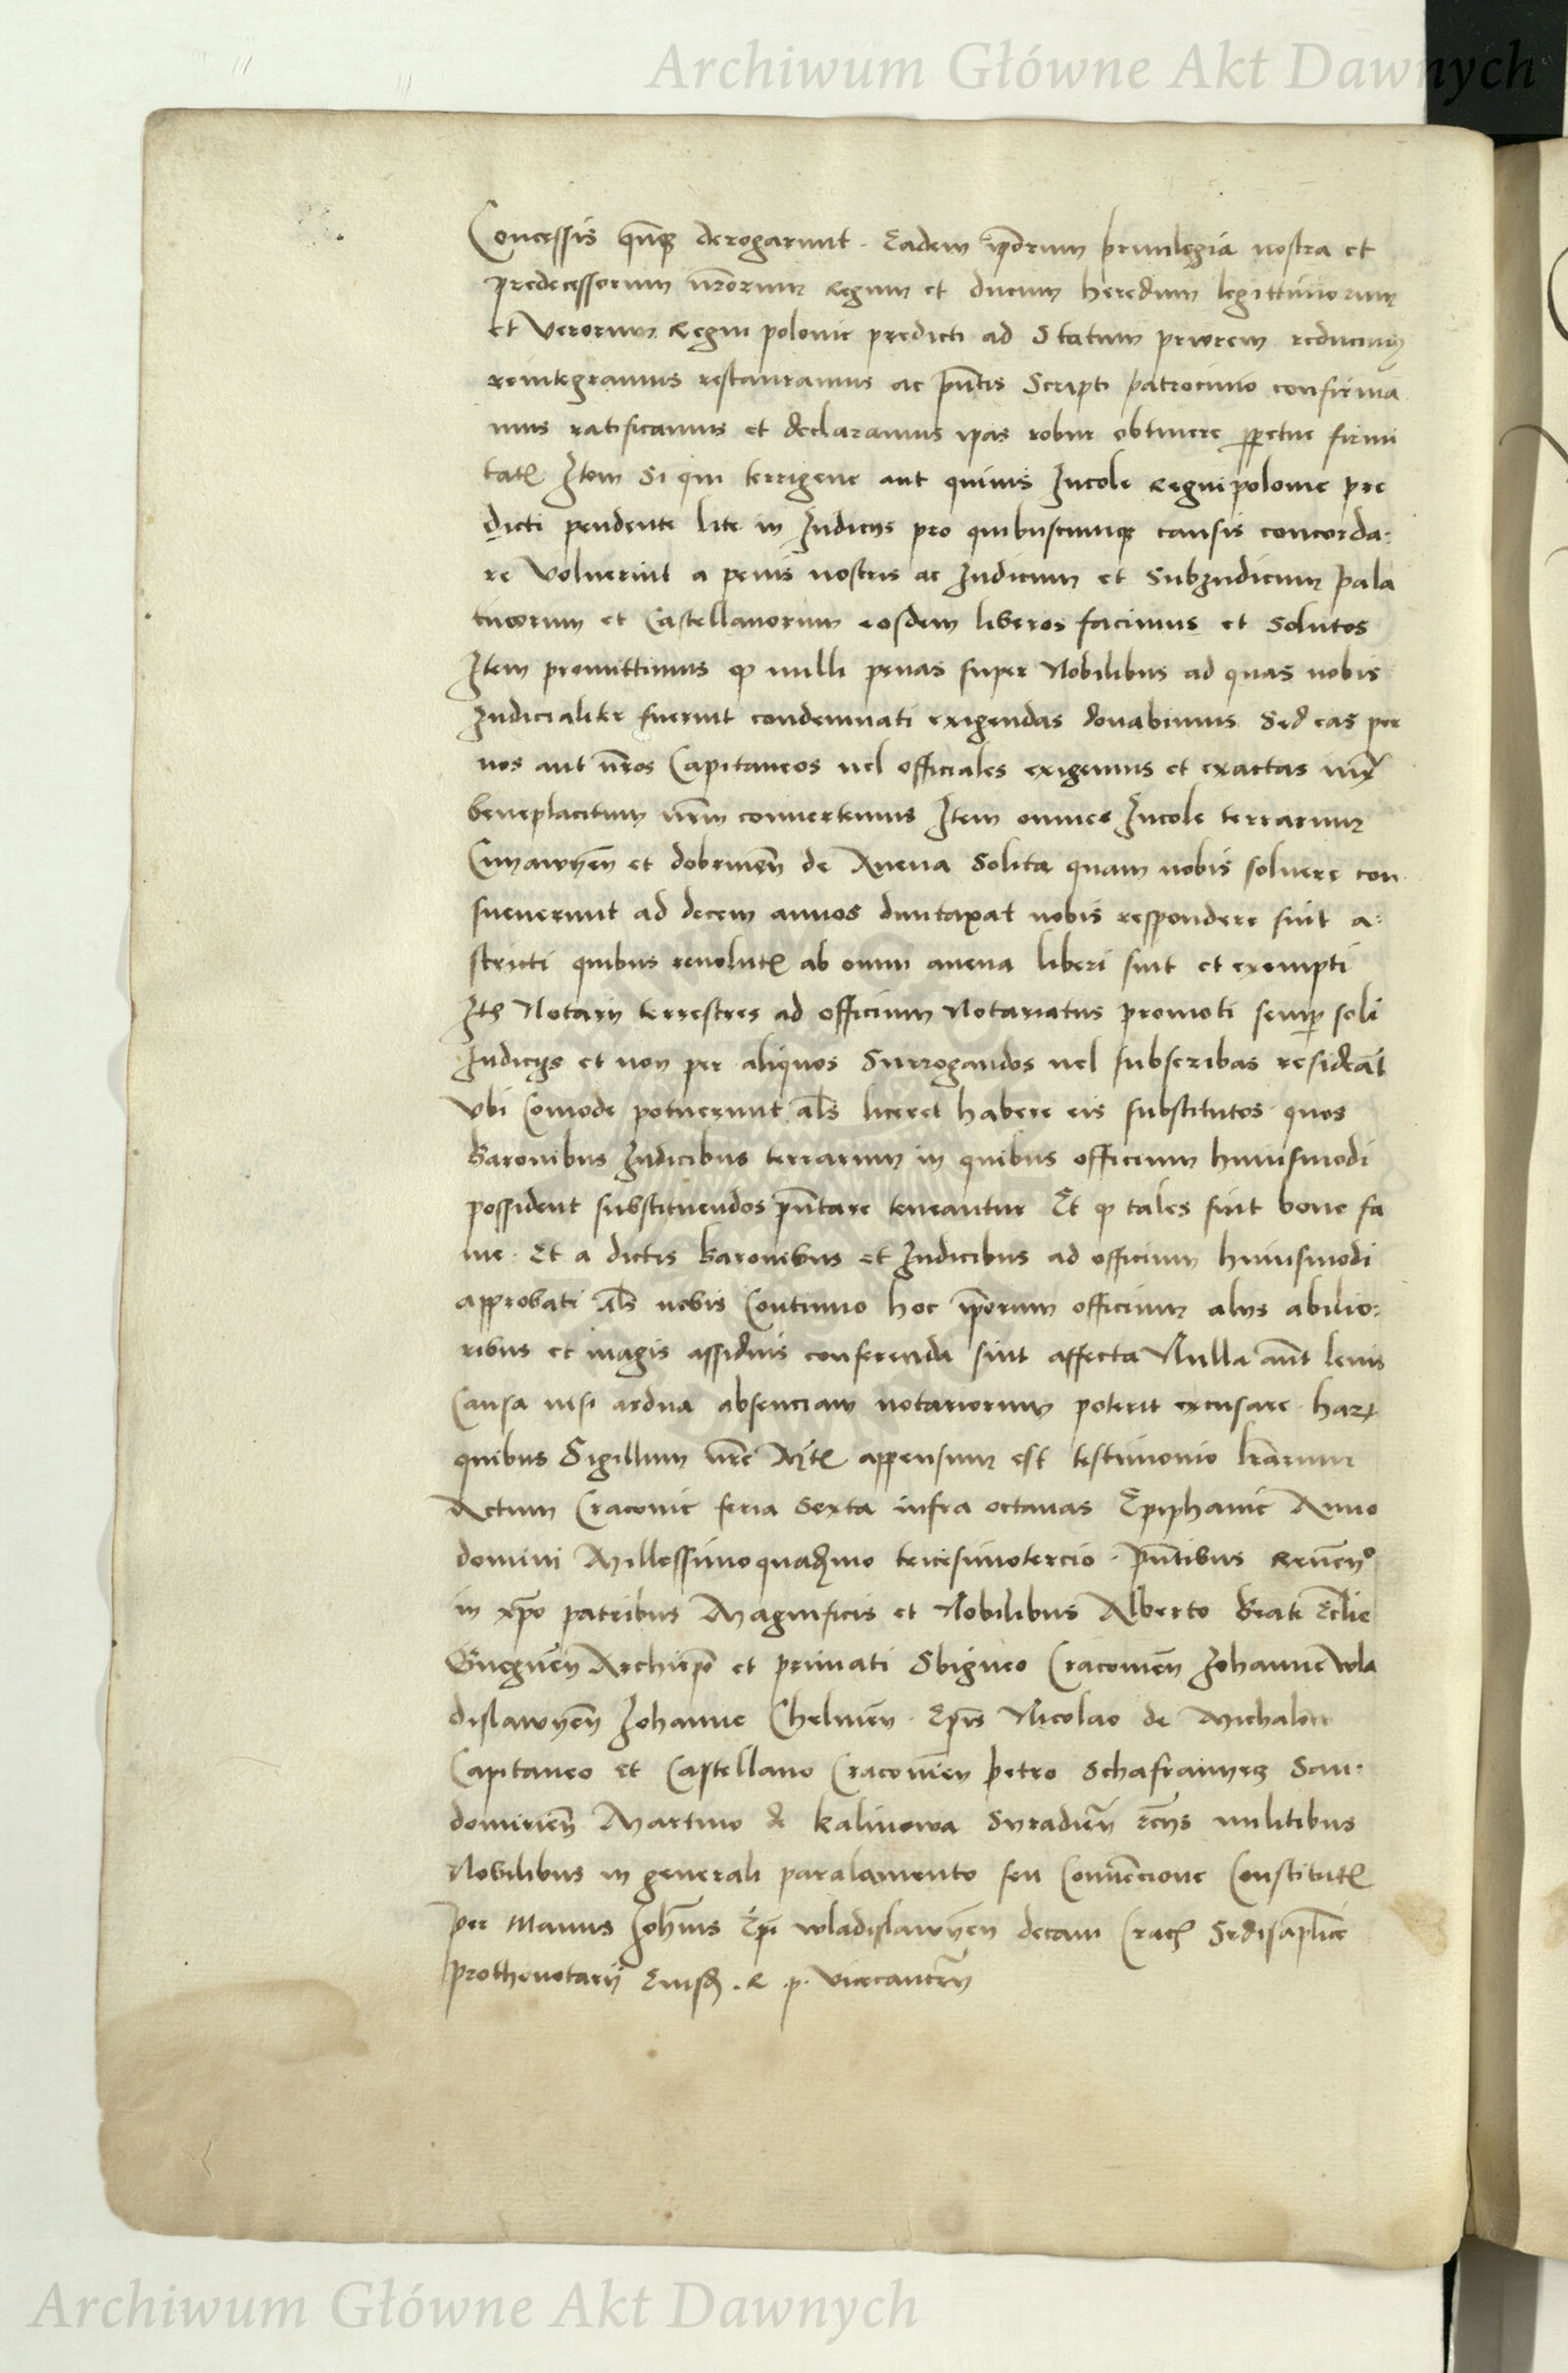 Archiwum Główne Akt Dawnych
Concessis qñqꝫ derogarunt. Eadem ip̄orum priuilegia nostra et
predecessorum nr̄orum Regum et ducum heredum legittimorum
et Verorum Regni polonie predicti ad Statum priorem reducimꝰ
reintegramus restauramus ac pñtis Scripti patrocinio confirma
mus ratificamus et declaramus ipas robur obtinere ꝑpetue firmi
tatꝭ Item Si qui terrigene aut quiuis Incole Regni polonie pre
dicti pendente lite in Iudicijs pro quibuscumqꝫ causis concorda:
re Voluerint a penis nostris ac Iudicum et Subiudicum pala
tinorum et Castellanorum eosdem liberos facimus et Solutos
Item promittimus ꝙ nulli penas super Nobilibus ad quas nobis
Iudicialiter fuerint condemnati exigendas donabimus Sed eas per
nos aut nr̄os Capitaneos uel officiales exigemus et exactas iuxͭ
beneplacitum nr̄m conuertemus Item omnes Incole terrarum
Cuyawyeñ et dobrineñ de Auena Solita quam nobis soluere con
sueuerunt ad decem annos duntaxat nobis respondere sint a:
stricti quibus reuolutꝭ ab omni auena liberi sint et exempti
Itꝫ Notarij terrestres ad officium Notariatus promoti semꝑ soli
Iudicijs et non per aliquos Surrogandos uel subscribas resideãt
Vbi Comode potuerunt als̄ liceret habere eis substitutos quos
Baronibus Iudicibus terrarum in quibus officium huiusmodi
possident substituendos pñtare teneantur Et ꝙ tales sint bone fa
me. Et a dictis Baronibus et Iudicibus ad officium huiusmodi
approbati als̄ nobis Continuo hoc ip̄orum officium alijs abilio:
ribus et magis assiduis conferenda sint affecta Nulla aũt leuis
Causa nisi ardua absenciam notariorum poterit excusare harꝝ
quibus Sigillum nr̄e Mtꝭ appensum est testimonio lr̄arum
Actum Cracouie feria Sexta infra octauas Epiphanie Anno
domini Millessimoquadꝛmo tricesimotercio. pñtibus Reueñꝰ
in xp̄o patribus Magnificis et Nobilibus Alberto Sancte Ecl̄ie
Gneznen̄ Archiep̄o et primati Sbigneo Cracouien̄ Johanne Wla
dislawyen̄ Johanne Chelmen̄. Ep̄is Nicolao de Michalow
Capitaneo et Castellano Cracouien̄ petro Schafranyecz San:
domirien̄ Martino de Kalinowa Syradien̄ et̄ijs militibus
Nobilibus in generali paralamento seu Conuēcione Constitutꝭ
per Manus Joh̄nis Ep̄i wladislawyen̄ decani Crac̄ Sedis aplīce
prothonotarij Eiusdꝫ. R. p. vicecancr̄ij
Archiwum Główne Akt Dawnych